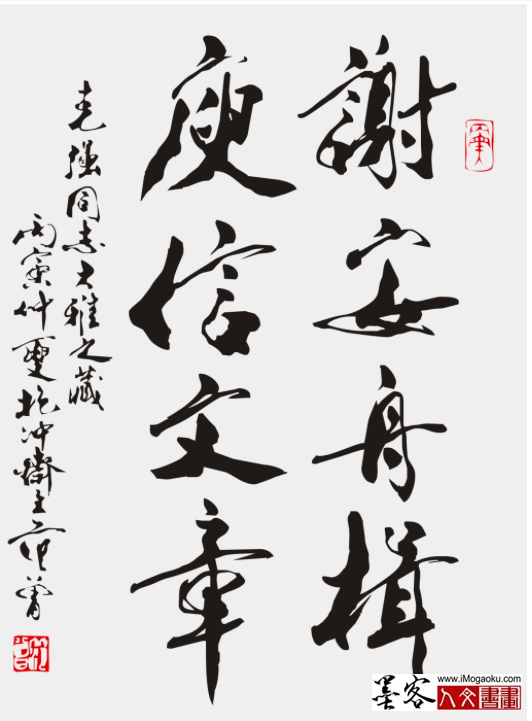 謝安舟楫
庾信文章
克強同志大雅之藏
丙寅仲夏抱冲齋主范曾
墨客
www.iMogaoku.com
人文書畫